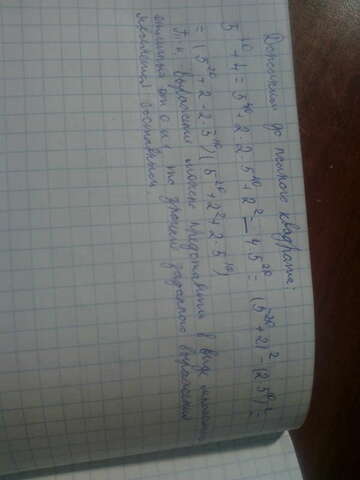 Дополним до полного квадрата:
5⁴⁰+4=5⁴⁰+2·2·5²⁰+2²-4·5²⁰=(5²⁰+2)²-(2·5¹⁰)²=
=(5²⁰+2-2·5¹⁰)(5²⁰+2+2·5¹⁰)
Т.к. выражение можно представить в виде
отличных от 0 и то значение заданного выражения
является составным.